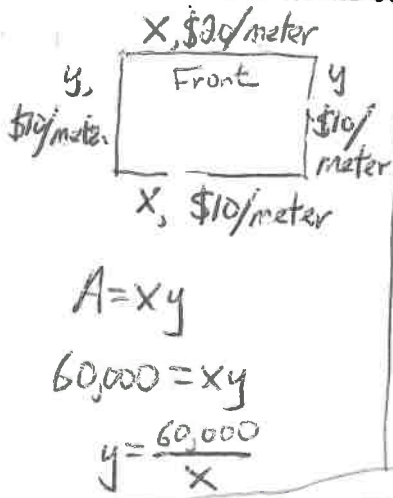 X, $20/meter
Front
y,
$10/meter
y
$10/
meter
X, $10/meter
A=xy
60,000=xy
y=60,000/x